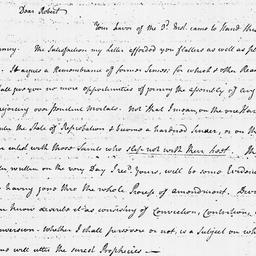 Dear Robert
Your Favor of the 3d. Inst. came to Hand this
. The Satisfaction my Letter afforded you flatters as well as pl
. It argues a Remembrance of former Scenes, for which & other Reas
all you no more opportunities of joining the assembly of any
rejoicing over penitent Mortals. Not that I mean, on the one Hand
under the State of Reprobation & become a hardened Sinner, or on the
enlist with those Saints who slept not with their host. Th
written on the very Day Preced. Yours, will be some Evidence
having gone thro the whole Process of amendment. Divi
know describe it as consisting of Conviction, Contrition,
Conversion. Whether I shall persevere or not, is a Subject on wh
will utter the surest Prophecies —